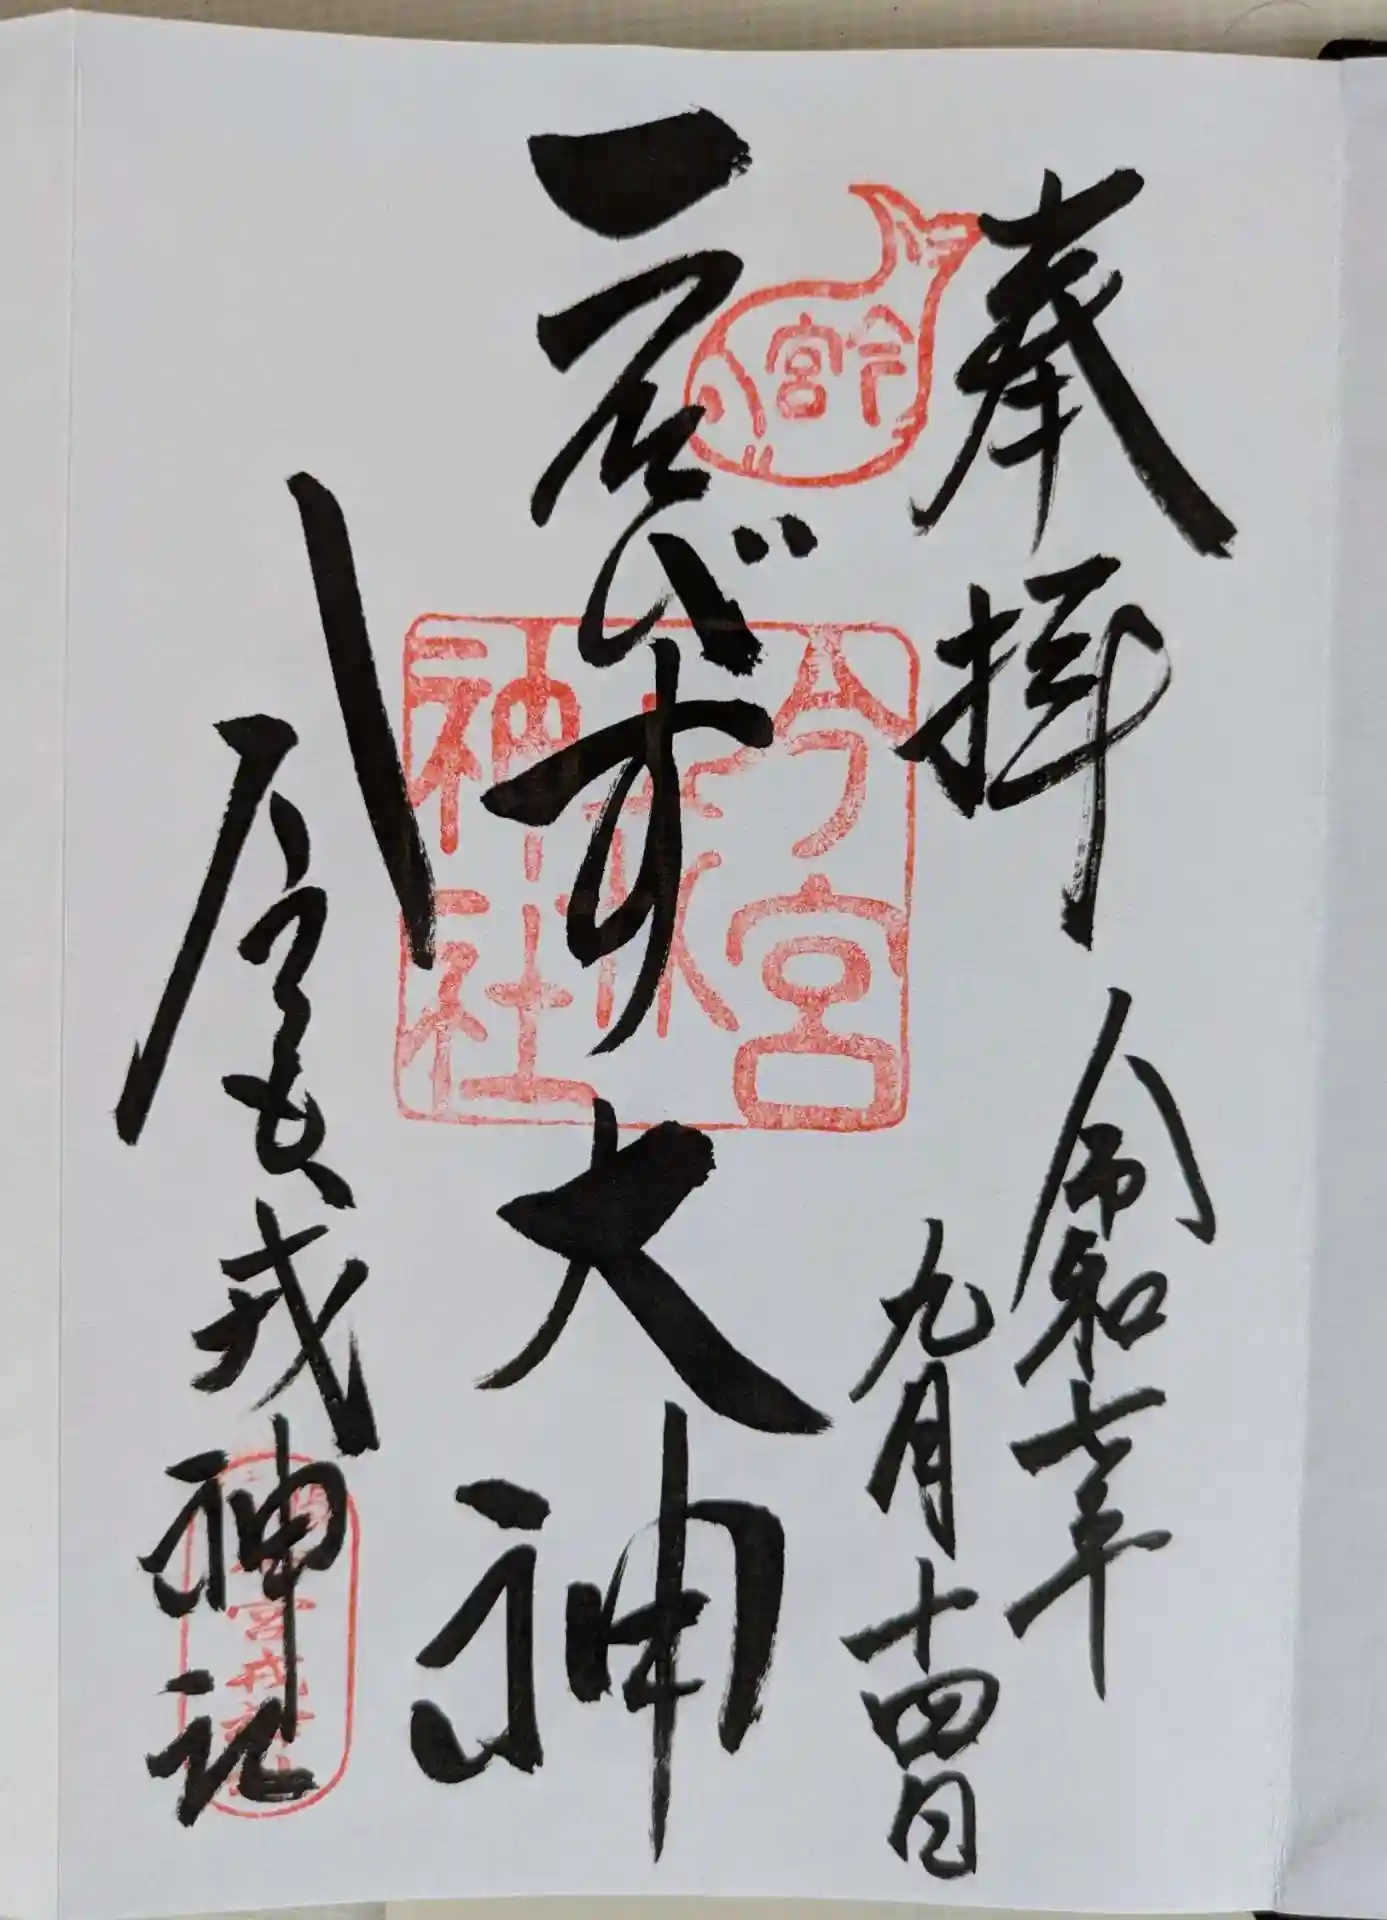 奉拝
令和七年
九月十四日
今宮
ゑびす大神
今宮
戎
神社
今宮戎神社
今宮戎神社